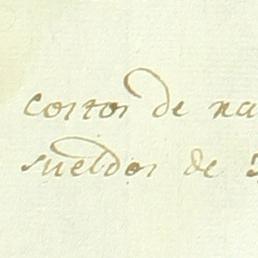 costos de na
sueldos de